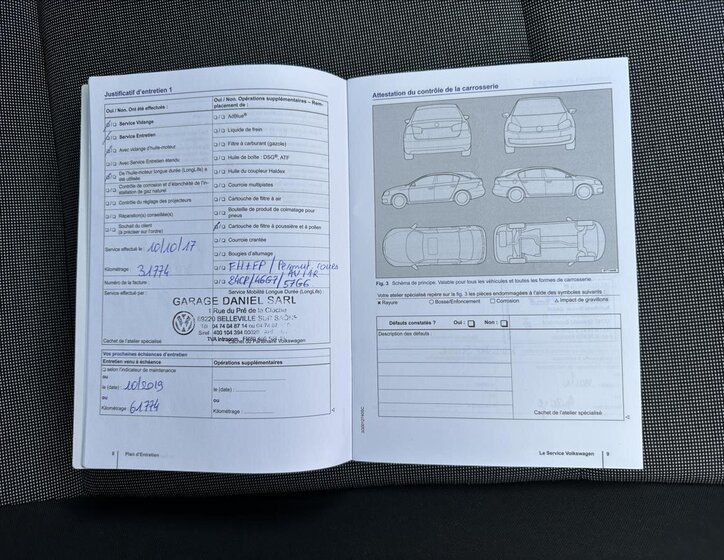 Justificatif d'entretien 1
Oui / Non. Ont été effectués :
Service Vidange
Service Entretien
Avec vidange d'huile-moteur
Avec Service Entretien étendu
De l'huile-moteur longue durée (LongLife) a été utilisée
Contrôle de corrosion et d'étanchéité de l'installation de gaz naturel
Contrôle du réglage des projecteurs
Réparation(s) conseillée(s)
Souhait du client
(à préciser sur l'ordre)
Service effectué le 10/10/17
Kilométrage : 31774
Numéro de la facture :
Service effectué par :
Oui / Non. Opérations supplémentaires – Remplacement de :
AdBlue®
Liquide de frein
Filtre à carburant (gazole)
Huile de boîte : DSG®, ATF
Huile du coupleur Haldex
Courroie multipistes
Cartouche de filtre à air
Bouteille de produit de colmatage pour pneus
Cartouche de filtre à poussière et à pollen
Courroie crantée
Bougies d'allumage
FH+FP / Permut roues
AV/AR
Service Mobilité Longue Durée (LongLife)
GARAGE DANIEL SARL
1 Rue du Pré de la Cloche
69220 BELLEVILLE SUR SAÔNE
Tél 04 74 04 87 14
Cachet de l'atelier spécialisé
Cachet du Partenaire Volkswagen
Vos prochaines échéances d'entretien
Entretien venu à échéance
selon l'indicateur de maintenance
ou
le (date) : 10/2019
ou
Kilométrage : 61774
Opérations supplémentaires
le (date) :
ou
Kilométrage :
8 Plan d'Entretien
Attestation du contrôle de la carrosserie
Fig. 3 Schéma de principe. Valable pour tous les véhicules et toutes les formes de carrosserie.
Votre atelier spécialisé repère sur la fig. 3 les pièces endommagées à l'aide des symboles suivants :
x Rayure
O Bosse/Enfoncement
□ Corrosion
△ Impact de gravillons
Défauts constatés ? Oui : Non :
Description des défauts :
Cachet de l'atelier spécialisé
Le Service Volkswagen 9